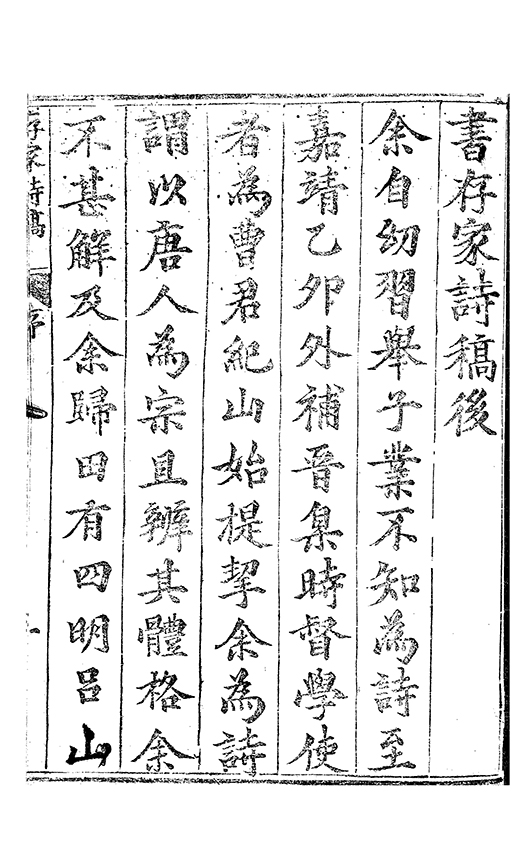 書存家詩稿後
余自幼習舉子業不知為詩至
嘉靖乙卯外補晉臬時督學使
者為曹君紀山始提挈余為詩
謂以唐人為宗且辨其體格余
不甚解及余歸田有四明呂山
存家詩稿 序